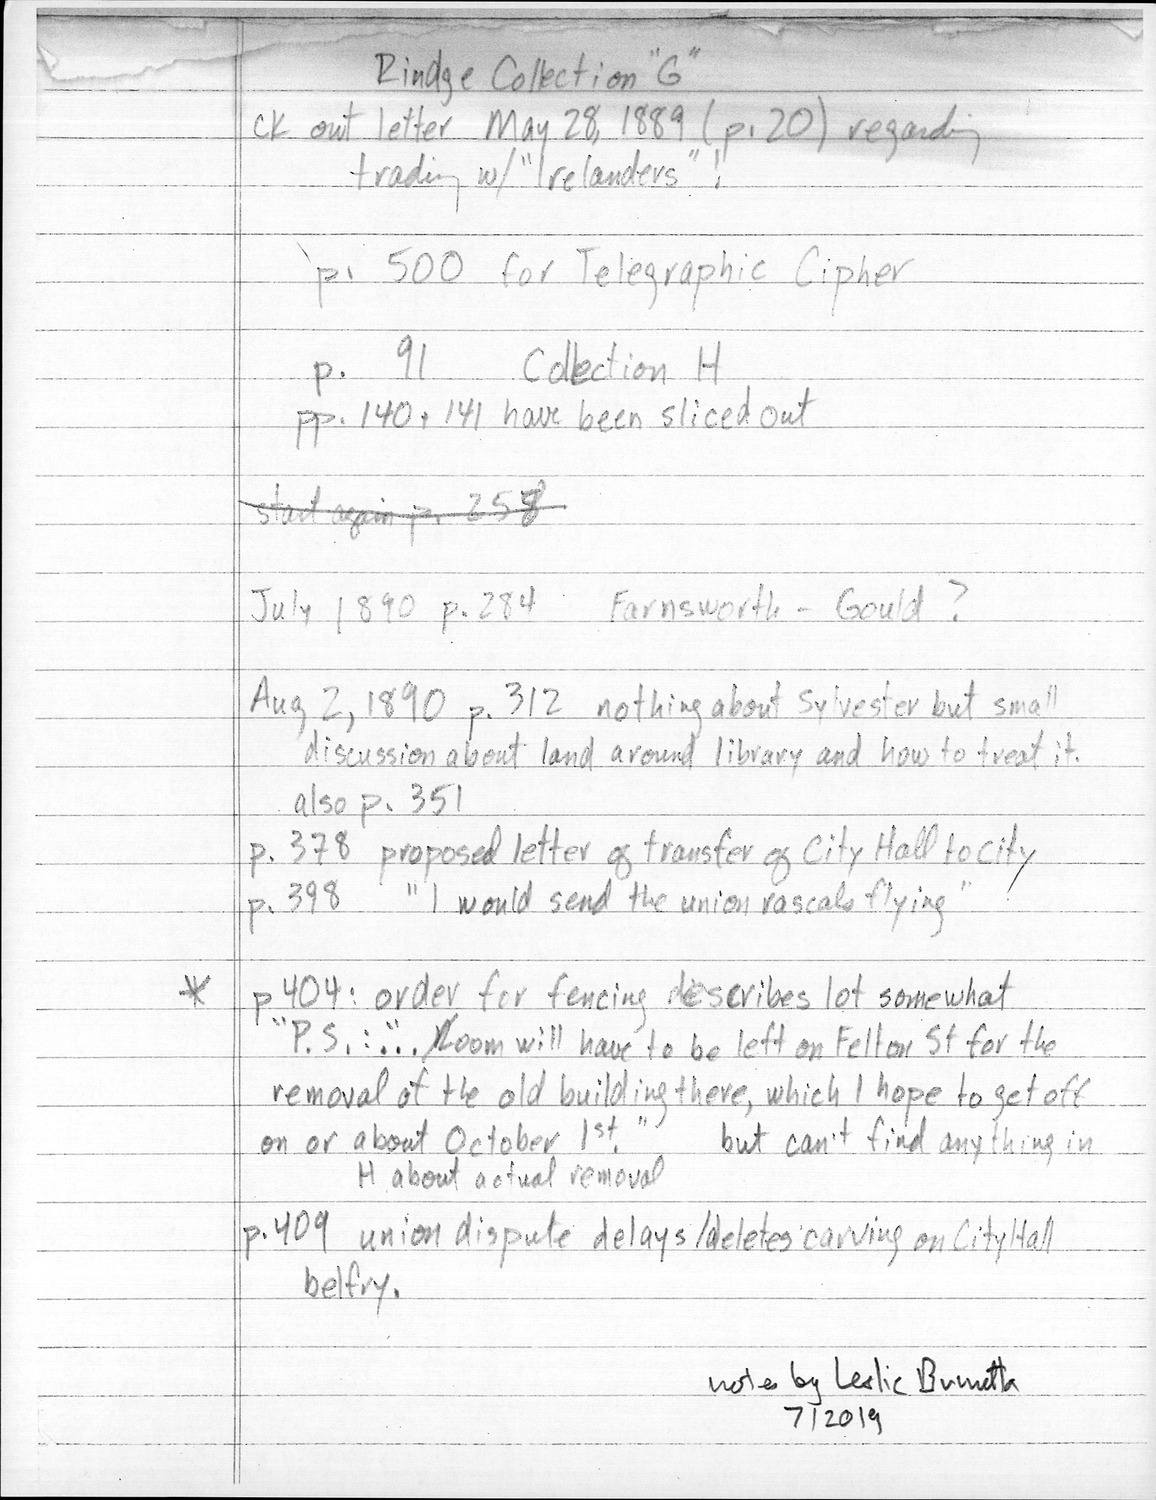 Rindge Collection "G"
ck out letter May 28, 1889 (p. 20) regarding
trading w/ "Irelanders"!
p. 500 for Telegraphic Cipher
p. 91 Collection H
pp. 140 + 141 have been sliced out
start again p. 258
July 1890 p. 284 Farnsworth - Gould?
Aug 2, 1890 p. 312 nothing about Sylvester but small
discussion about land around library and how to treat it.
also p. 351
p. 378 proposed letter of transfer of City Hall to City
p. 398 "I would send the union rascals flying"!
* p 404: order for fencing describes lot somewhat
"P.S.: "... Room will have to be left on Felton St for the
removal of the old building there, which I hope to get off
on or about October 1st." but can't find anything in
H about actual removal
p. 409 union dispute delays/deletes carving on City Hall
belfry.
notes by Leslie Brunetta
7/2019